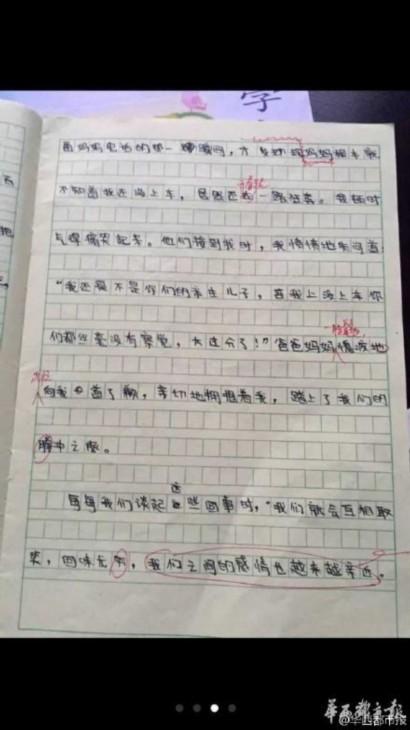 学
妈妈电话的那一瞬间,才
不知道我还没上车,居然还 一路狂奔。我顿时
气得痛哭起来。他们接到我时,我愤愤地来了句:
“我还是不是你们的亲生儿子,苦我上没上车你
们都丝毫没有察觉,太过分了!”爸爸妈妈愧疚地
向我 道了歉,亲切地拥抱着我,踏上了我们的
之旅。
每每我们谈起这些囧事时,“我们就会互相取
笑,回味无穷,我们之间的感情也越来越亲近。
华西都市报
@华西都市报